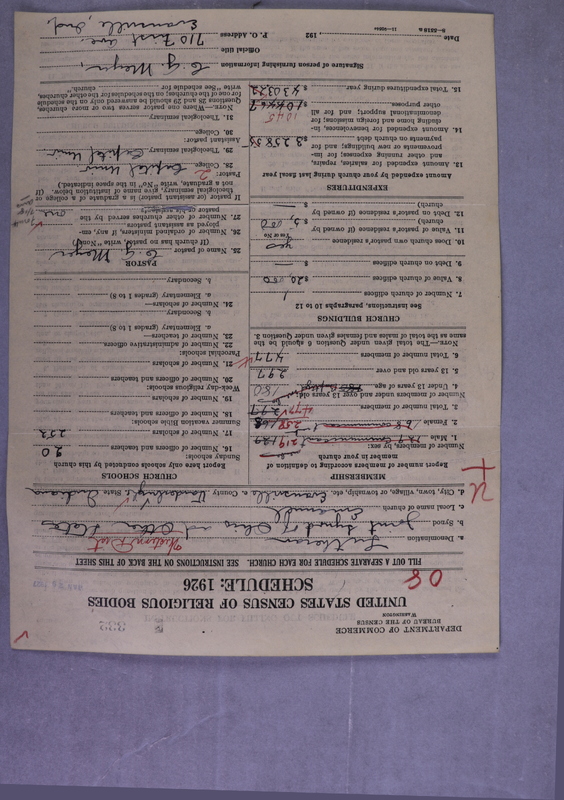 DEPARTMENT OF COMMERCE
BUREAU OF THE CENSUS
WASHINGTON
UNITED STATES CENSUS OF RELIGIOUS BODIES
SCHEDULE: 1926
80
FILL OUT A SEPARATE SCHEDULE FOR EACH CHURCH. SEE INSTRUCTIONS ON THE BACK OF THIS SHEET
a. Denomination Lutheran
b. Synod Joint Synod of Ohio and Other States
c. Local name of church Emanuel
d. City, town, village, or township, etc. Evansville County Vanderburgh State Indiana
MEMBERSHIP
Report number of members according to definition of member in your church
Number of members by sex:
1. Male 219
2. Female 258
3. Total number of members 477
4. Under 13 years of age 180
Number of members under and over 13 years old:
5. 13 years old and over 297
6. Total number of members 477
NOTE.—The total given under Question 6 should be the same as the total of males and females given under Question 3.
CHURCH BUILDINGS
See instructions, paragraphs 10 to 12
7. Number of church edifices 1
8. Value of church edifices $ 20,000
9. Debt on church edifices $ —
10. Does church own pastor's residence yes
(Yes or No)
11. Value of pastor's residence (if owned by church) $ 5,000
12. Debt on pastor's residence (if owned by church) $ —
EXPENDITURES
Amount expended by your church during last fiscal year
13. Amount expended for salaries, repairs, and other running expenses; for improvements or new buildings; and for payments on church debt
14. Amount expended for benevolences, including home and foreign missions; for denominational support; and for all other purposes
15. Total expenditures during year $ 4303.22
CHURCH SCHOOLS
Report here only schools conducted by this church
Sunday schools:
16. Number of officers and teachers 20
17. Number of scholars 253
Summer vacation Bible schools:
18. Number of officers and teachers
19. Number of scholars
Week-day religious schools:
20. Number of officers and teachers
21. Number of scholars
Parochial schools:
22. Number of administrative officers
23. Number of teachers—
a. Elementary (grades 1 to 8)
b. Secondary
24. Number of scholars—
a. Elementary (grades 1 to 8)
b. Secondary
PASTOR
25. Name of pastor C. G. Meyer
(If church has no pastor write "No")
26. Number of ordained ministers, if any, employed as assistant pastors
27. Number of other churches served by the pastor one
If pastor (or assistant pastor) is a graduate of a college or theological seminary, give name of institution below. (If not a graduate, write "No" in the space indicated.)
Pastor:
28. College Capital Univ
29. Theological seminary Capital Univ
Assistant pastor:
30. College
31. Theological seminary
NOTE.—Where one pastor serves two or more churches, Questions 28 and 29 should be answered only on the schedule for one of the churches; on the schedules for the other churches, write "See schedule for church."
Signature of person furnishing information C. G. Meyer
Official title
P. O. Address 710 First Ave. Evansville, Ind
Date , 192